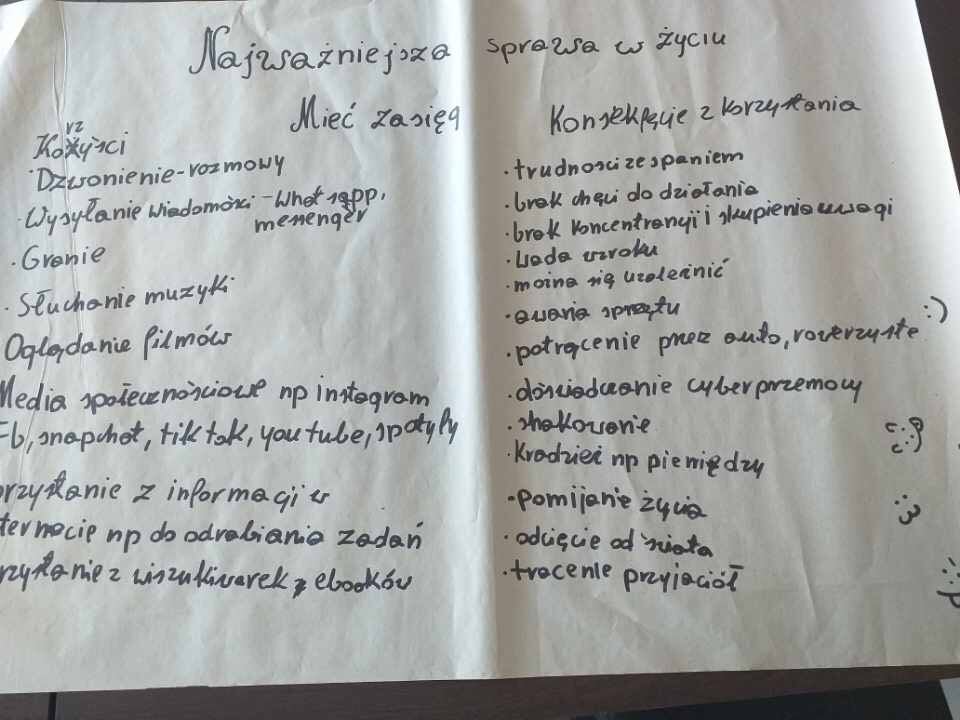 Najważniejsza sprawa w życiu
Mieć zasięg
rz
Kożyści
Dzwonienie-rozmowy
Wysyłanie wiadomości - Whatsapp,
messenger
Granie
Słuchanie muzyki
Oglądanie filmów
Media społecznościowe np instagram
Fb, snapchat, tik tok, youtube, spotyfy
orzystanie z informagi w
ternecie np do odrabiania zadań
rzystanie z wiszukiwarek, ebooków
Konsekfęcje z korzystania
• trudnosci ze spaniem
• brak chęci do działania
• brak koncentrangi i skupienia uwagi
• wada wzroku
• można się uzależnić
• awaria sprzętu
• potrącenie przez auto, rowerzyste :)
• doświadczanie cyberprzemocy
• shakowanie
• Kradzież np pieniędzy
• pomijanie życia
• odcięcie od świata
• tracenie przyjaciół